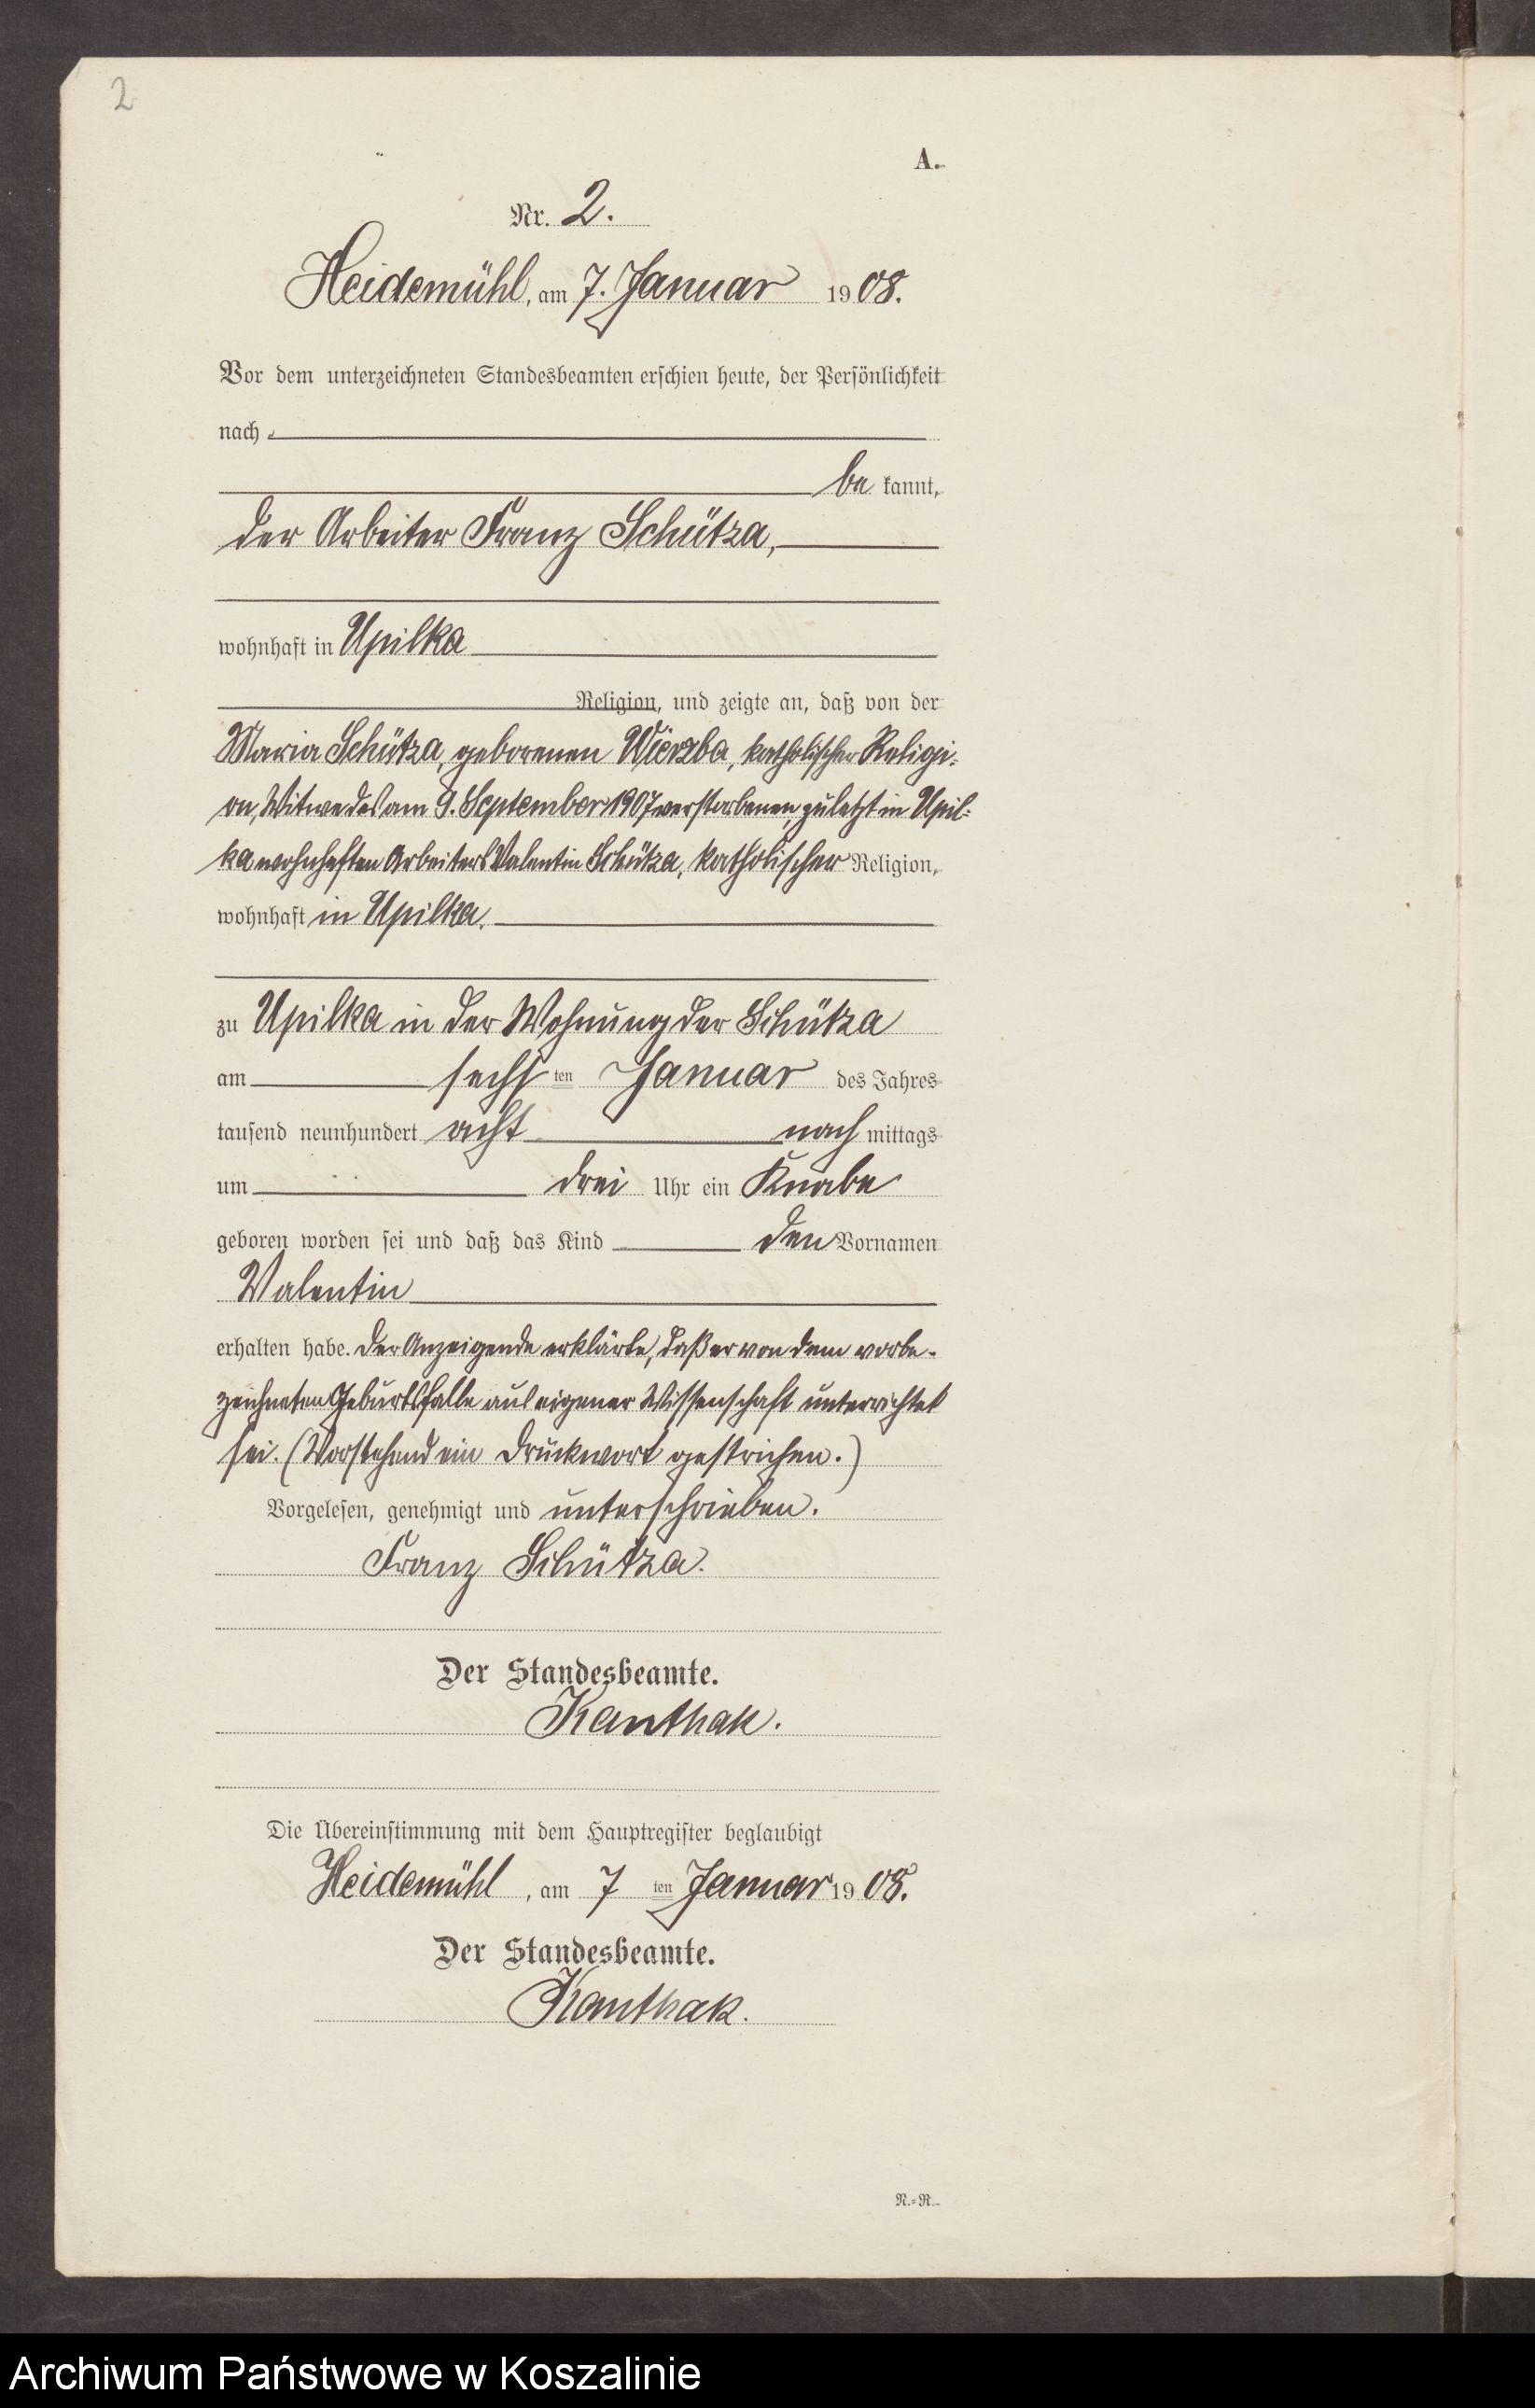 2
A.
Nr. 2.
Heidemühl, am 7. Januar 1908.
Vor dem unterzeichneten Standesbeamten erschien heute, der Persönlichkeit
nach
be kannt,
der Arbeiter Franz Schütza,
wohnhaft in Upilka
Religion, und zeigte an, daß von der
Maria Schütza, geborenen Wierzba, katholischer Religi-
on, Witwe des am 9. September 1907 verstorbenen, zuletzt in Upil-
ka wohnhaften Arbeiters Valentin Schütza, katholischer Religion,
wohnhaft in Upilka,
zu Upilka in der Wohnung der Schütza
am sechsten Januar des Jahres
tausend neunhundert acht nach mittags
um drei Uhr ein Knabe
geboren worden sei und daß das Kind den Vornamen
Valentin
erhalten habe. Der Anzeigende erklärte, daß er von dem vorbe-
zeichneten Geburtsfalle aus eigener Wissenschaft unterrichtet
sei. (Vorstehend ein Druckwort gestrichen.)
Vorgelesen, genehmigt und unterschrieben.
Franz Schütza.
Der Standesbeamte.
Kanthak.
Die Übereinstimmung mit dem Hauptregister beglaubigt
Heidemühl, am 7ten Januar 1908.
Der Standesbeamte.
Kanthak.
N.=R.
Archiwum Państwowe w Koszalinie